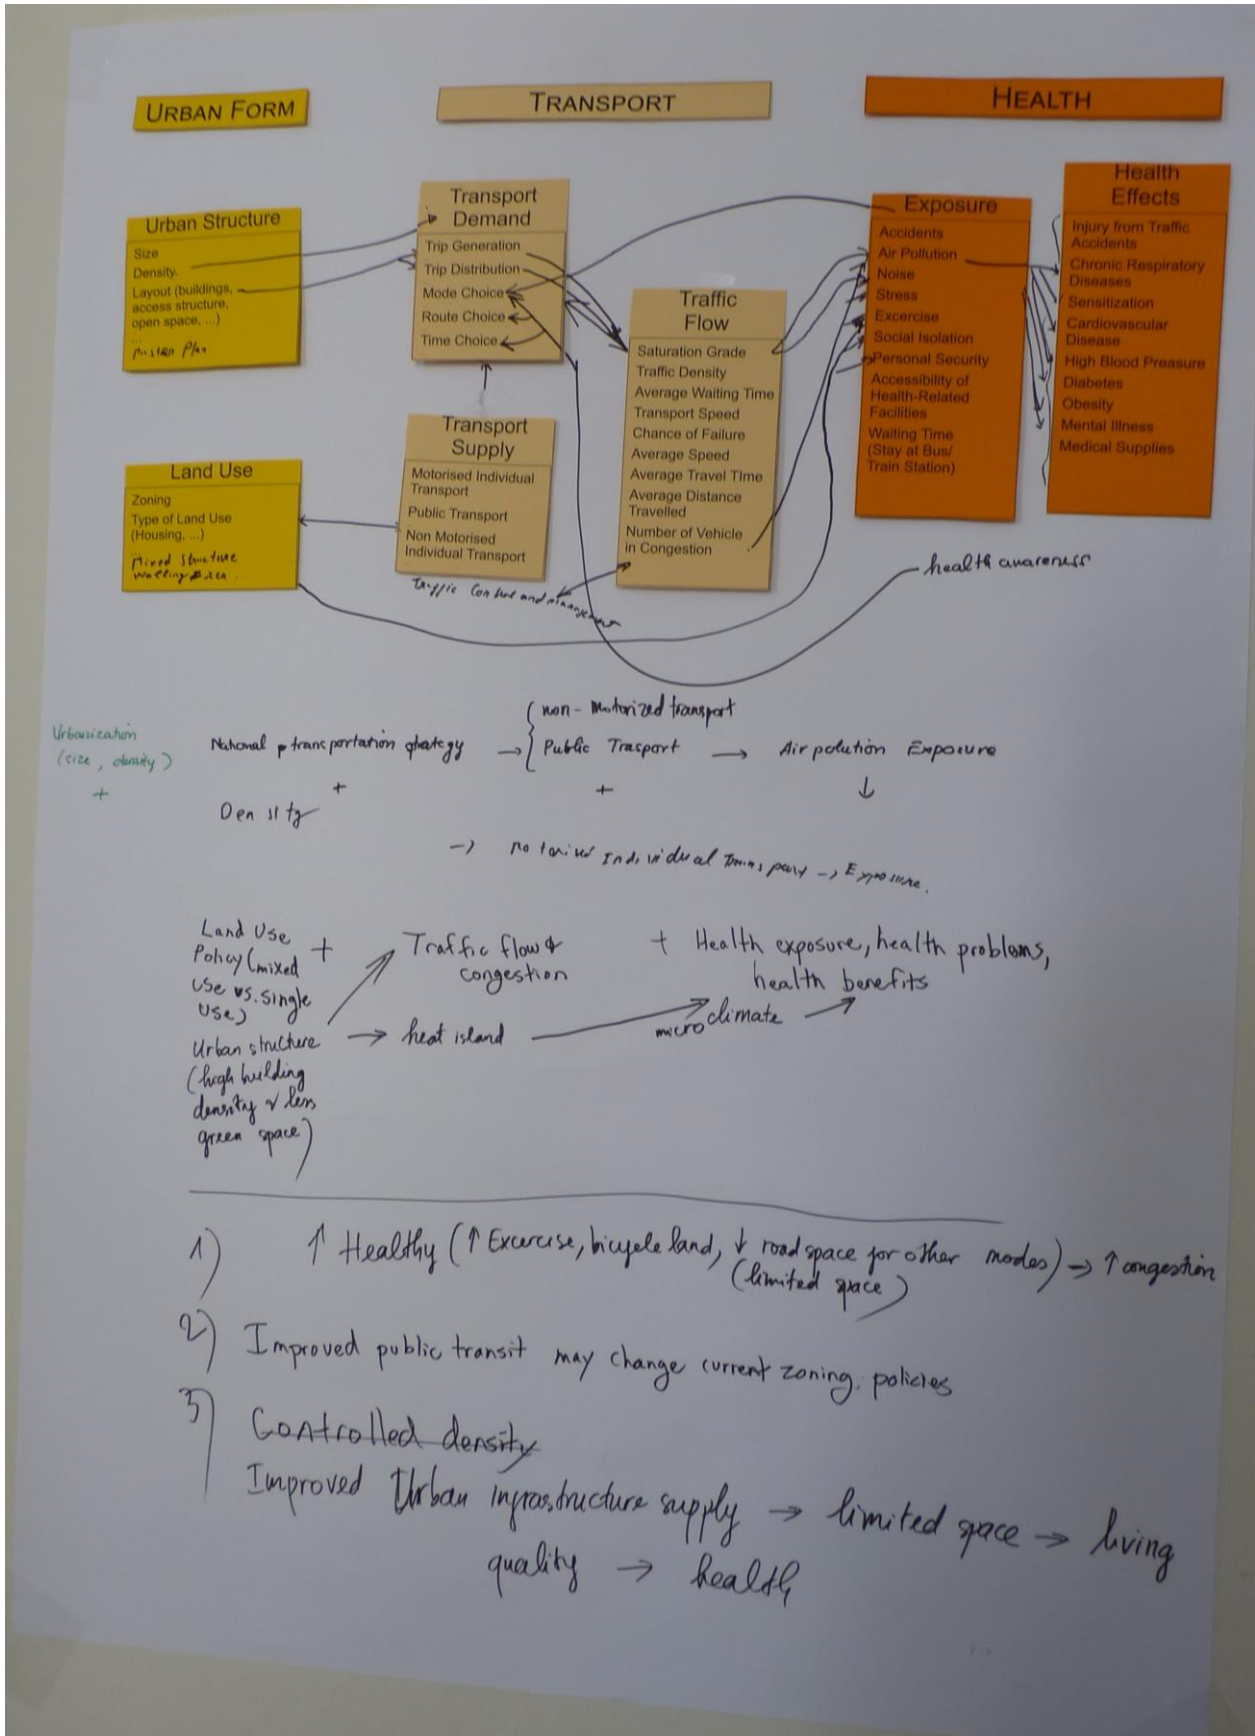 URBAN FORM
TRANSPORT
HEALTH
Urban Structure
Size
Density
Layout (buildings,
access structure,
open space, ...)
...
Master Plan
Land Use
Zoning
Type of Land Use
(Housing, ...)
...
Mixed Structure
Walking Area
Transport
Demand
Trip Generation
Trip Distribution
Mode Choice
Route Choice
Time Choice
Transport
Supply
Motorised Individual
Transport
Public Transport
Non Motorised
Individual Transport
Traffic Control and management
Traffic
Flow
Saturation Grade
Traffic Density
Average Waiting Time
Transport Speed
Chance of Failure
Average Speed
Average Travel TIme
Average Distance
Travelled
Number of Vehicle
in Congestion
Exposure
Accidents
Air Pollution
Noise
Stress
Excercise
Social Isolation
Personal Security
Accessibility of
Health-Related
Facilities
Waiting Time
(Stay at Bus/
Train Station)
Health
Effects
Injury from Traffic
Accidents
Chronic Respiratory
Diseases
Sensitization
Cardiovascular
Disease
High Blood Preasure
Diabetes
Obesity
Mental Illness
Medical Supplies
health awareness
Urbanization
(size, density)
+
National transportation strategy → { non-motorized transport
Public Trasport → Air polution Exposure
+ + ↓
Density
→ motorised Individual Transport → Exposure.
Land Use
Policy (mixed
use vs. single
use)
+
Traffic flow &
congestion
+ Health exposure, health problems,
health benefits
Urban structure
(high building
density & less
green space)
→ heat island → micro climate →
1) ↑ Healthy (↑ Excercise, bicycle land, ↓ road space for other modes) → ↑ congestion
(limited space)
2) Improved public transit may change current zoning policies
3) Controlled density
Improved Urban infrastructure supply → limited space → living
quality → health